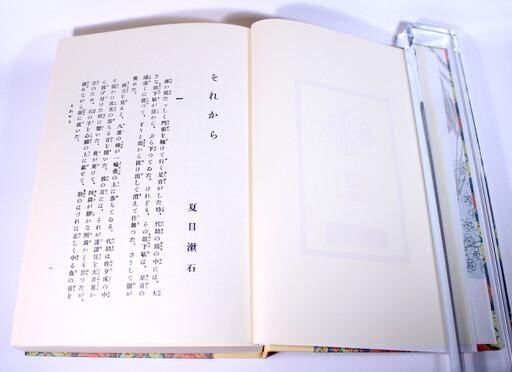 それから
夏目漱石
一
誰か慌たゞしく門前を馳けて行く足音がした時、代助の頭の中には、大
きな俎下駄が空から、ぶら下つてゐた。けれども、その俎下駄は、足音の
遠退くに從つて、すうと頭から拔け出して消えて仕舞つた。さうして眼が
覺めた。
枕元を見ると、八重の椿が一輪疊の上に落ちてゐる。代助は昨夕床の中
で慥かに此花の落ちる音を聞いた。彼の耳には、それが護謨毬を天井裏か
ら投げ付けた程に響いた。夜が更けて、四隣が靜かな所爲かとも思つたが、
念のため、右の手を心臟の上に載せて、肋のはづれに正しく中る血の音を
確かめながら眠に就いた。
それから
一